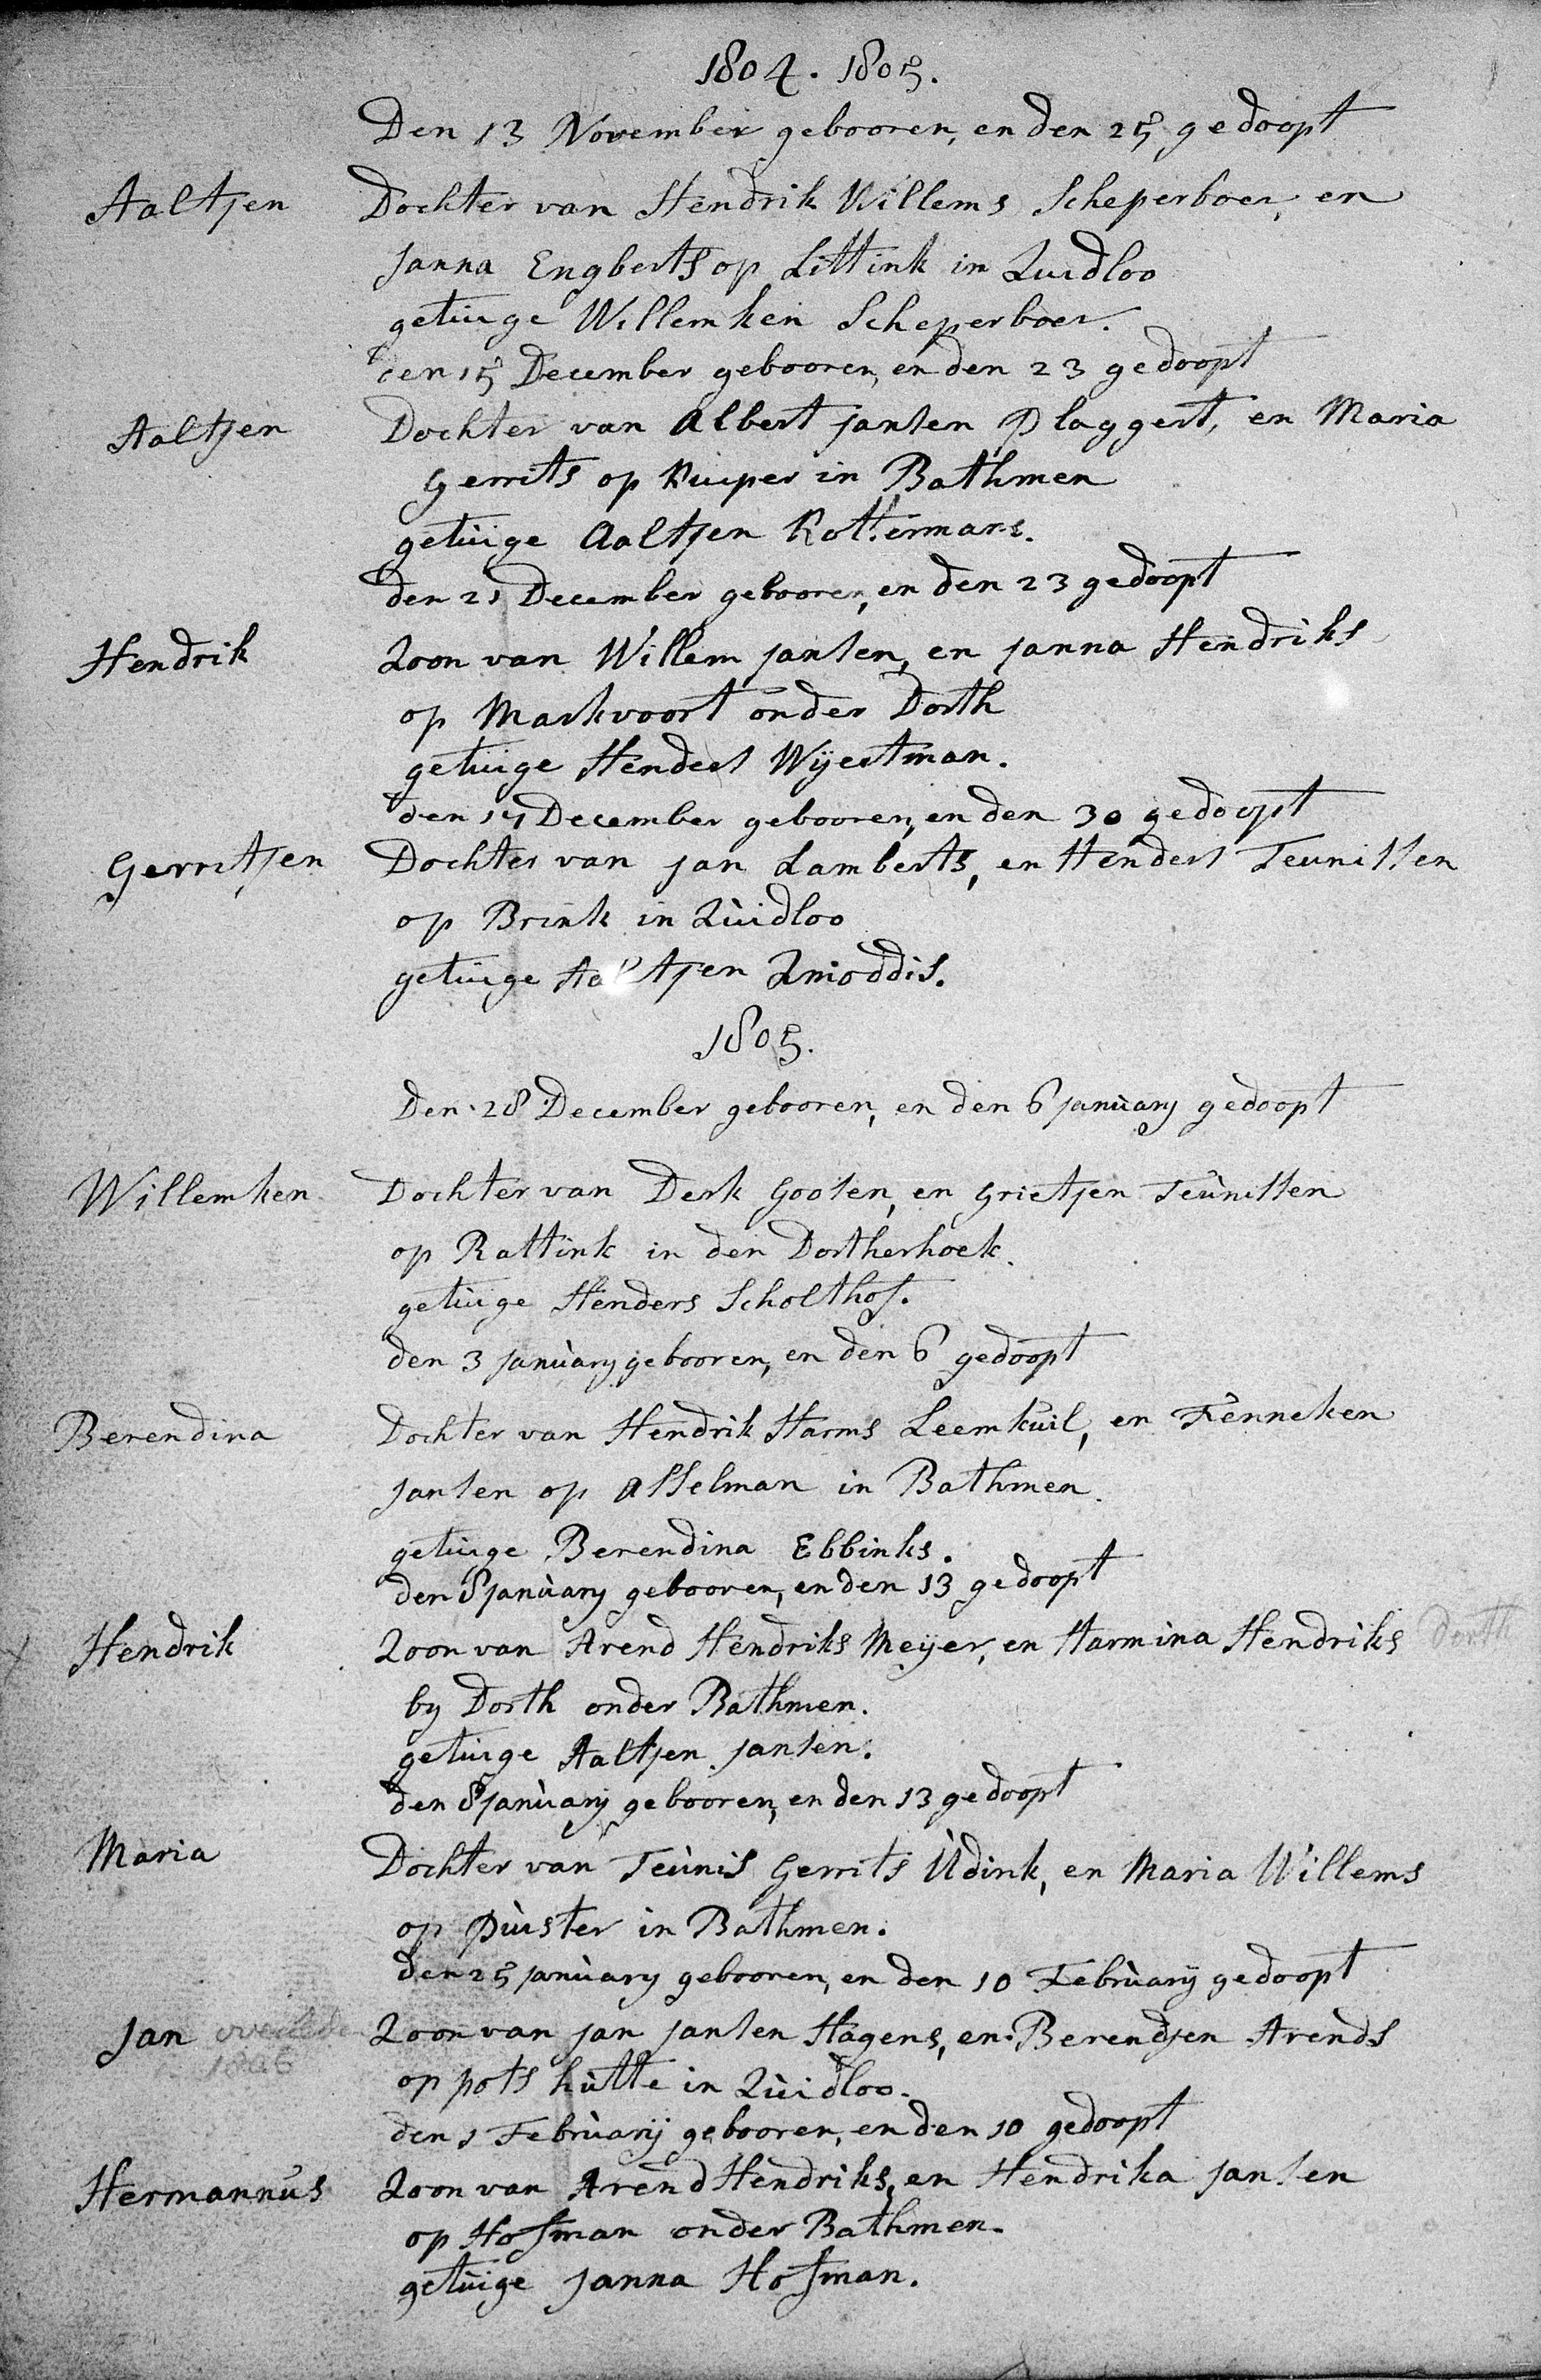 1804. 1805.
Den 13 November gebooren, en den 25 gedoopt
Aaltjen Dochter van Hendrik Willems Scheperboer, en
Janna Engberts op Littink in Zuidloo
getuige Willemken Scheperboer.
den 15 December gebooren, en den 23 gedoopt
Aaltjen Dochter van Albert Jansen Plaggert, en Maria
Gerrits op Kuiper in Bathmen
getuige Aaltjen Kottermans.
den 21 December gebooren, en den 23 gedoopt
Hendrik Zoon van Willem Jansen, en Janna Hendriks
op Markvoort onder Dorth
getuige Henders Wijestman.
den 17 December gebooren, en den 30 gedoopt
Gerritjen Dochter van Jan Lamberts, en Henders Teunissen
op Brink in Zuidloo
getuige Aaltjen Zmoddis.
1805.
Den 28 December gebooren, en den 6 January gedoopt
Willemken Dochter van Derk Goosen, en Grietjen Teunissen
op Rattink in den Dortherhoek.
getuige Henders Scholthof.
den 3 January gebooren, en den 6 gedoopt
Berendina Dochter van Hendrik Harms Leemkuil, en Fenneken
Jansen op Asselman in Bathmen.
getuige Berendina Ebbinks.
den 8 January gebooren, en den 13 gedoopt
Hendrik Zoon van Arend Hendriks Meyer, en Harmina Hendriks Dorth
by Dorth onder Bathmen.
getuige Aaltjen Jansen.
den 8 January gebooren, en den 13 gedoopt
Maria Dochter van Teunis Gerrits Udink, en Maria Willems
op Puister in Bathmen.
den 25 January gebooren, en den 10 February gedoopt
Jan overleden Zoon van Jan Jansen Hagens, en Berendjen Arends
1806
op pots hutte in Zuidloo.
den 1 February gebooren, en den 10 gedoopt
Hermannus Zoon van Arend Hendriks, en Hendrika Jansen
op Hofman onder Bathmen.
getuige Janna Hofman.